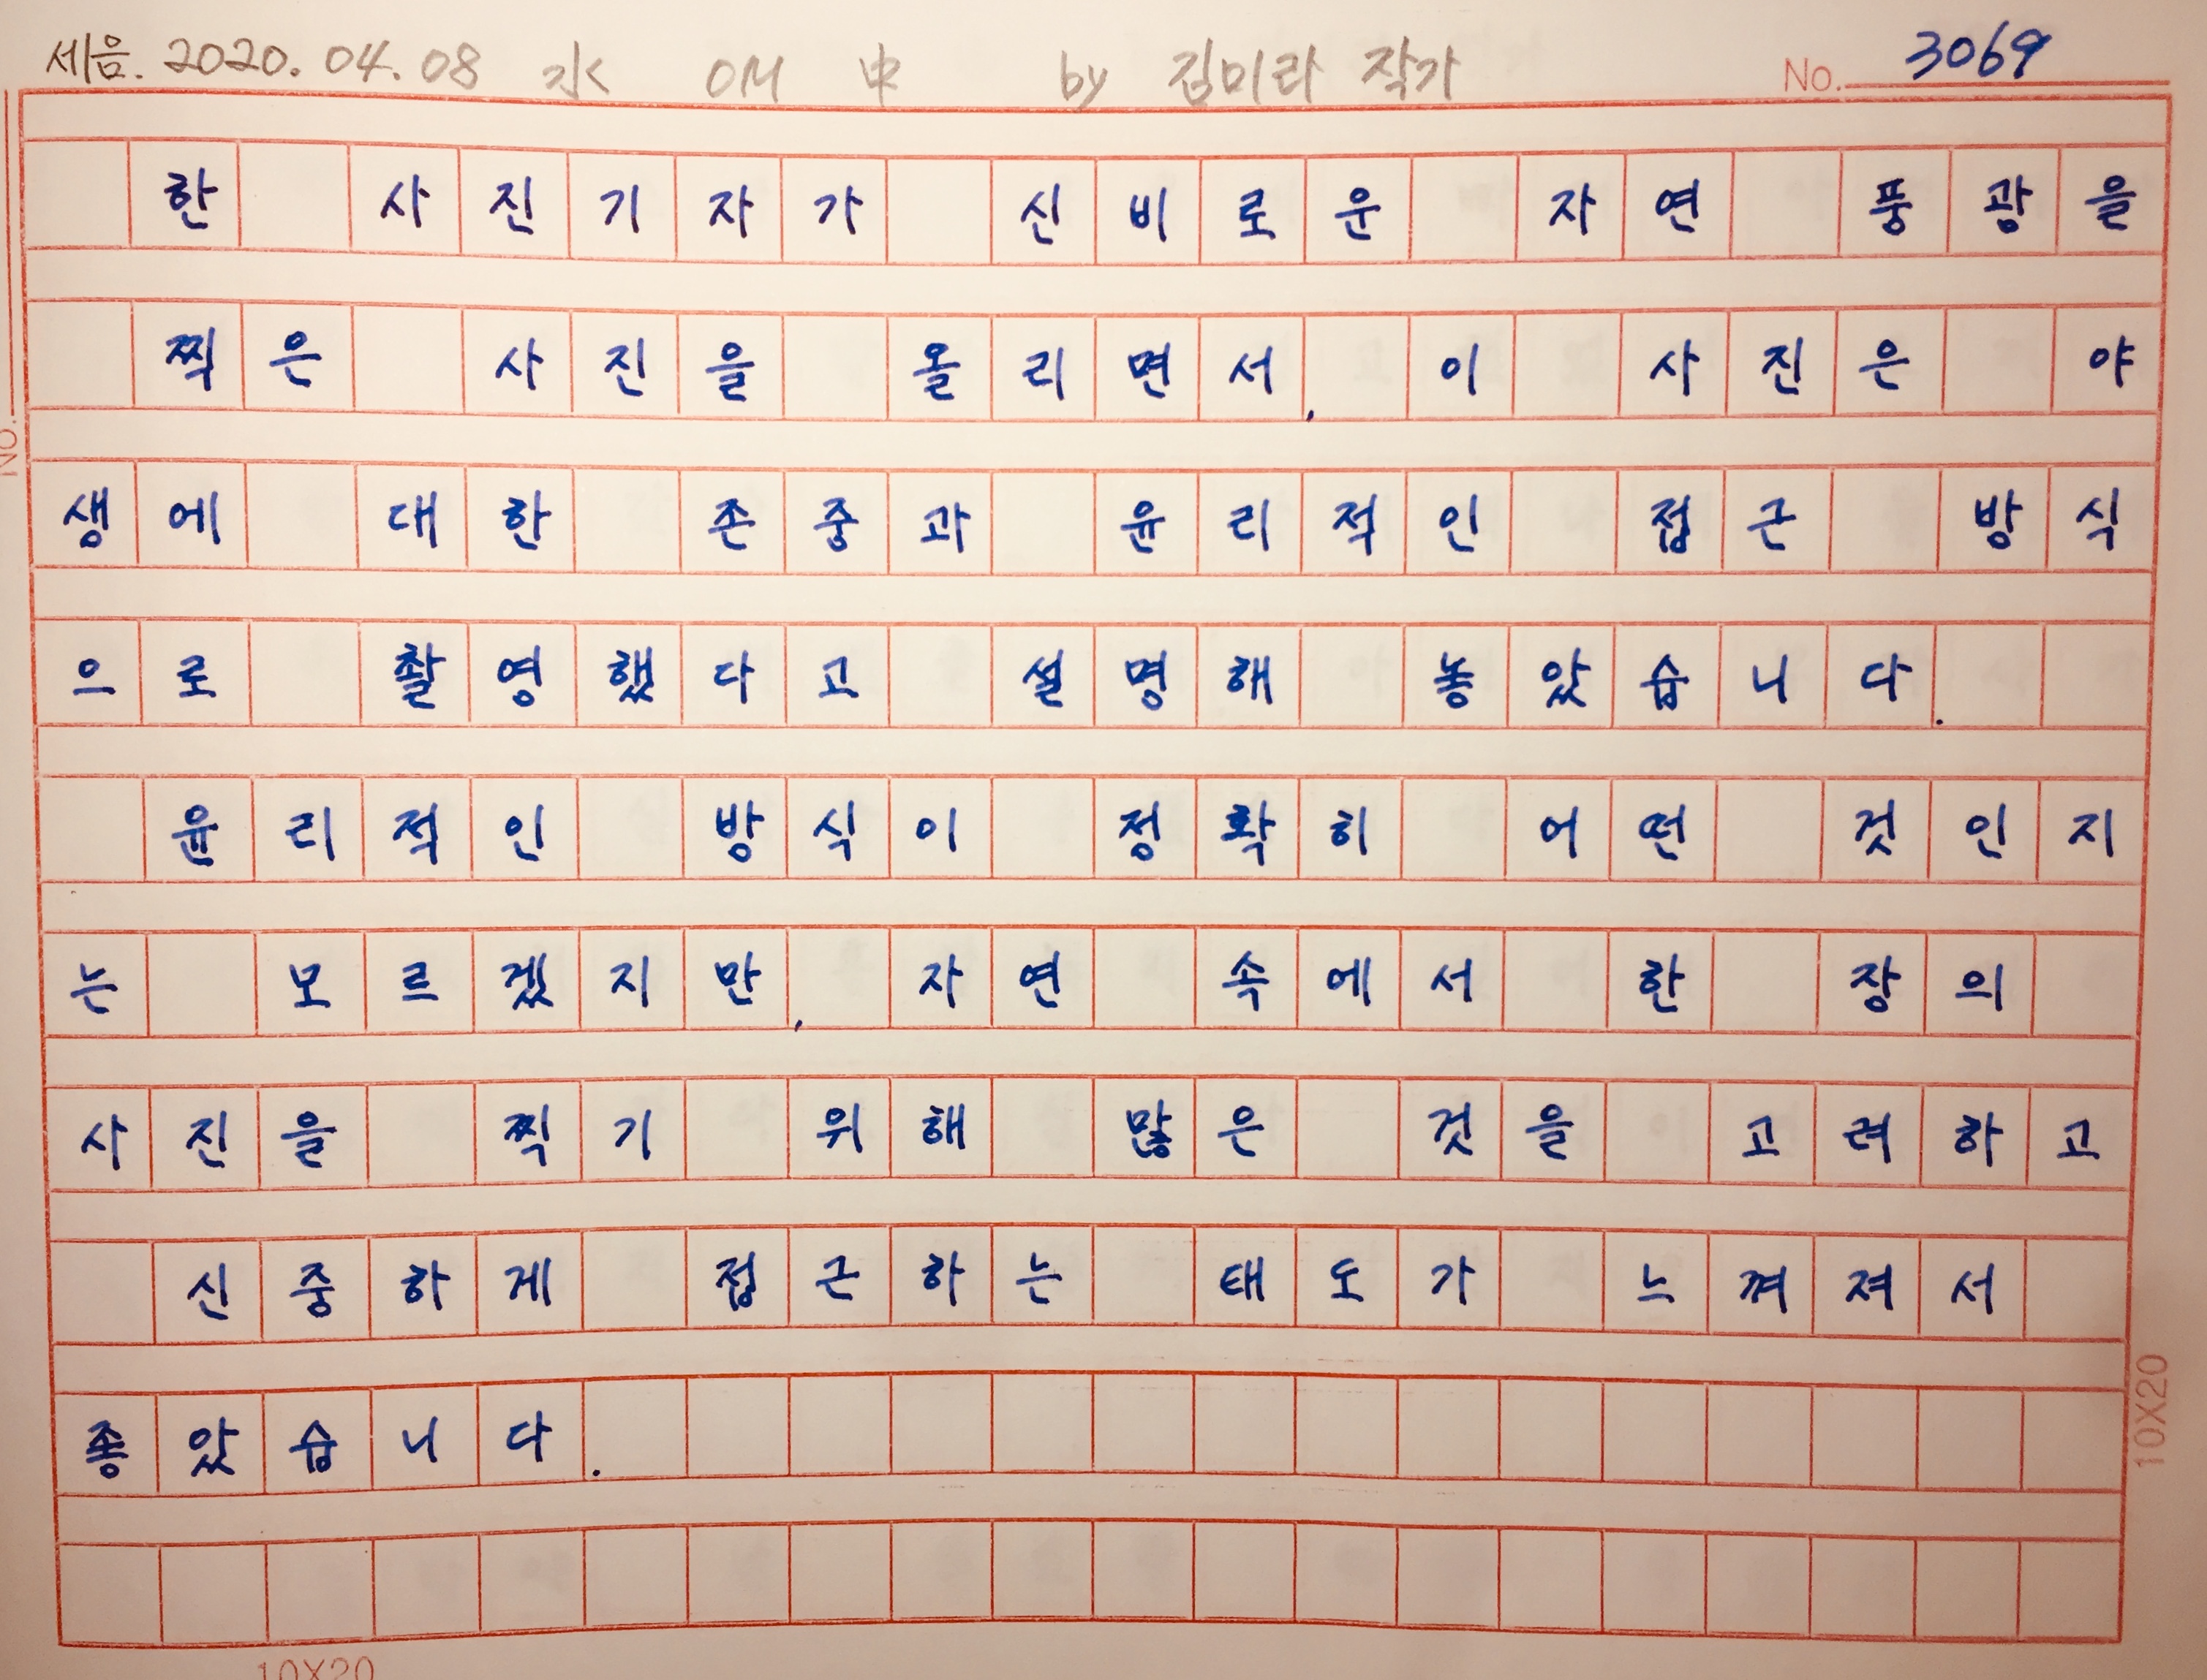 세음. 2020. 04. 08 水 OM 中 by 김미라 작가 No. 3069
한 사진기자가 신비로운 자연 풍광을
찍은 사진을 올리면서, 이 사진은 야
생에 대한 존중과 윤리적인 접근 방식
으로 촬영했다고 설명해 놓았습니다.
윤리적인 방식이 정확히 어떤 것인지
는 모르겠지만, 자연 속에서 한 장의
사진을 찍기 위해 많은 것을 고려하고
신중하게 접근하는 태도가 느껴져서
좋았습니다.
No.
10X20
10X20